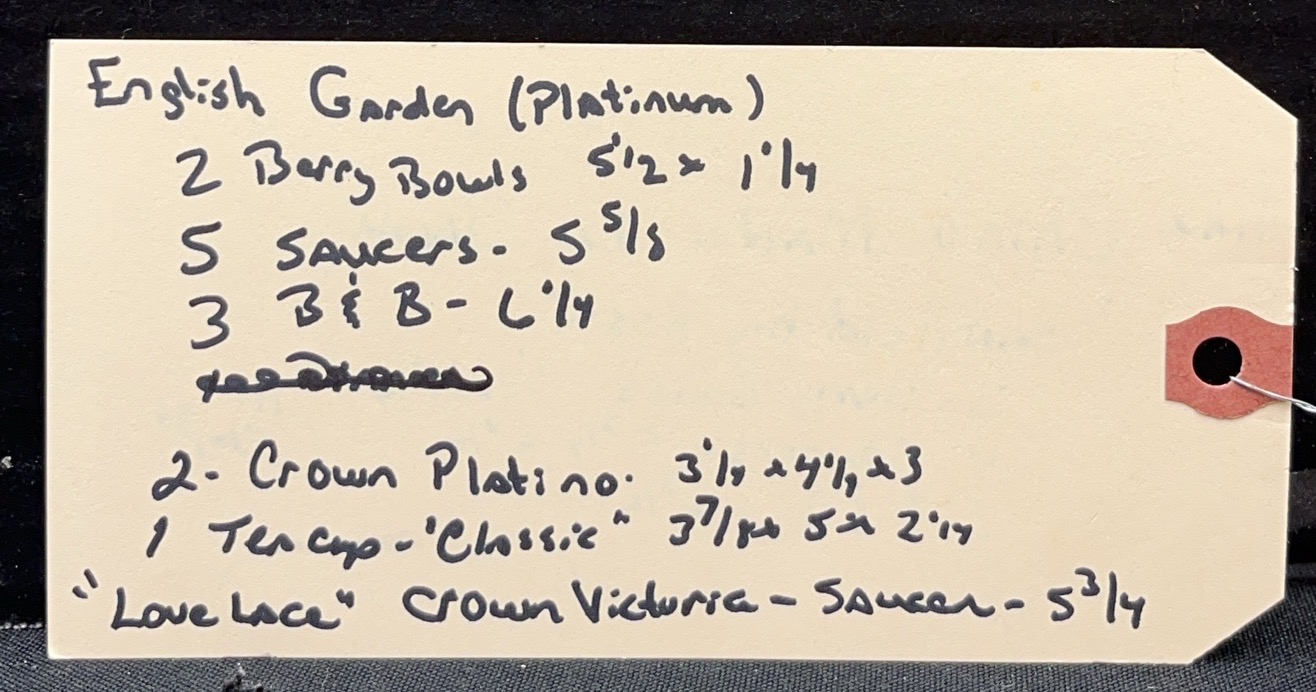 English Garden (Platinum)
2 Berry Bowls 5 1/2 x 1 1/4
5 Saucers - 5 5/8
3 B & B - 6 1/4
2 - Crown Platino - 3 1/4 x 4 1/4 x 3
1 Tea cup - "Classic" 3 7/8 x 5 x 2 1/4
"Love Lace" Crown Victoria - Saucer - 5 3/4